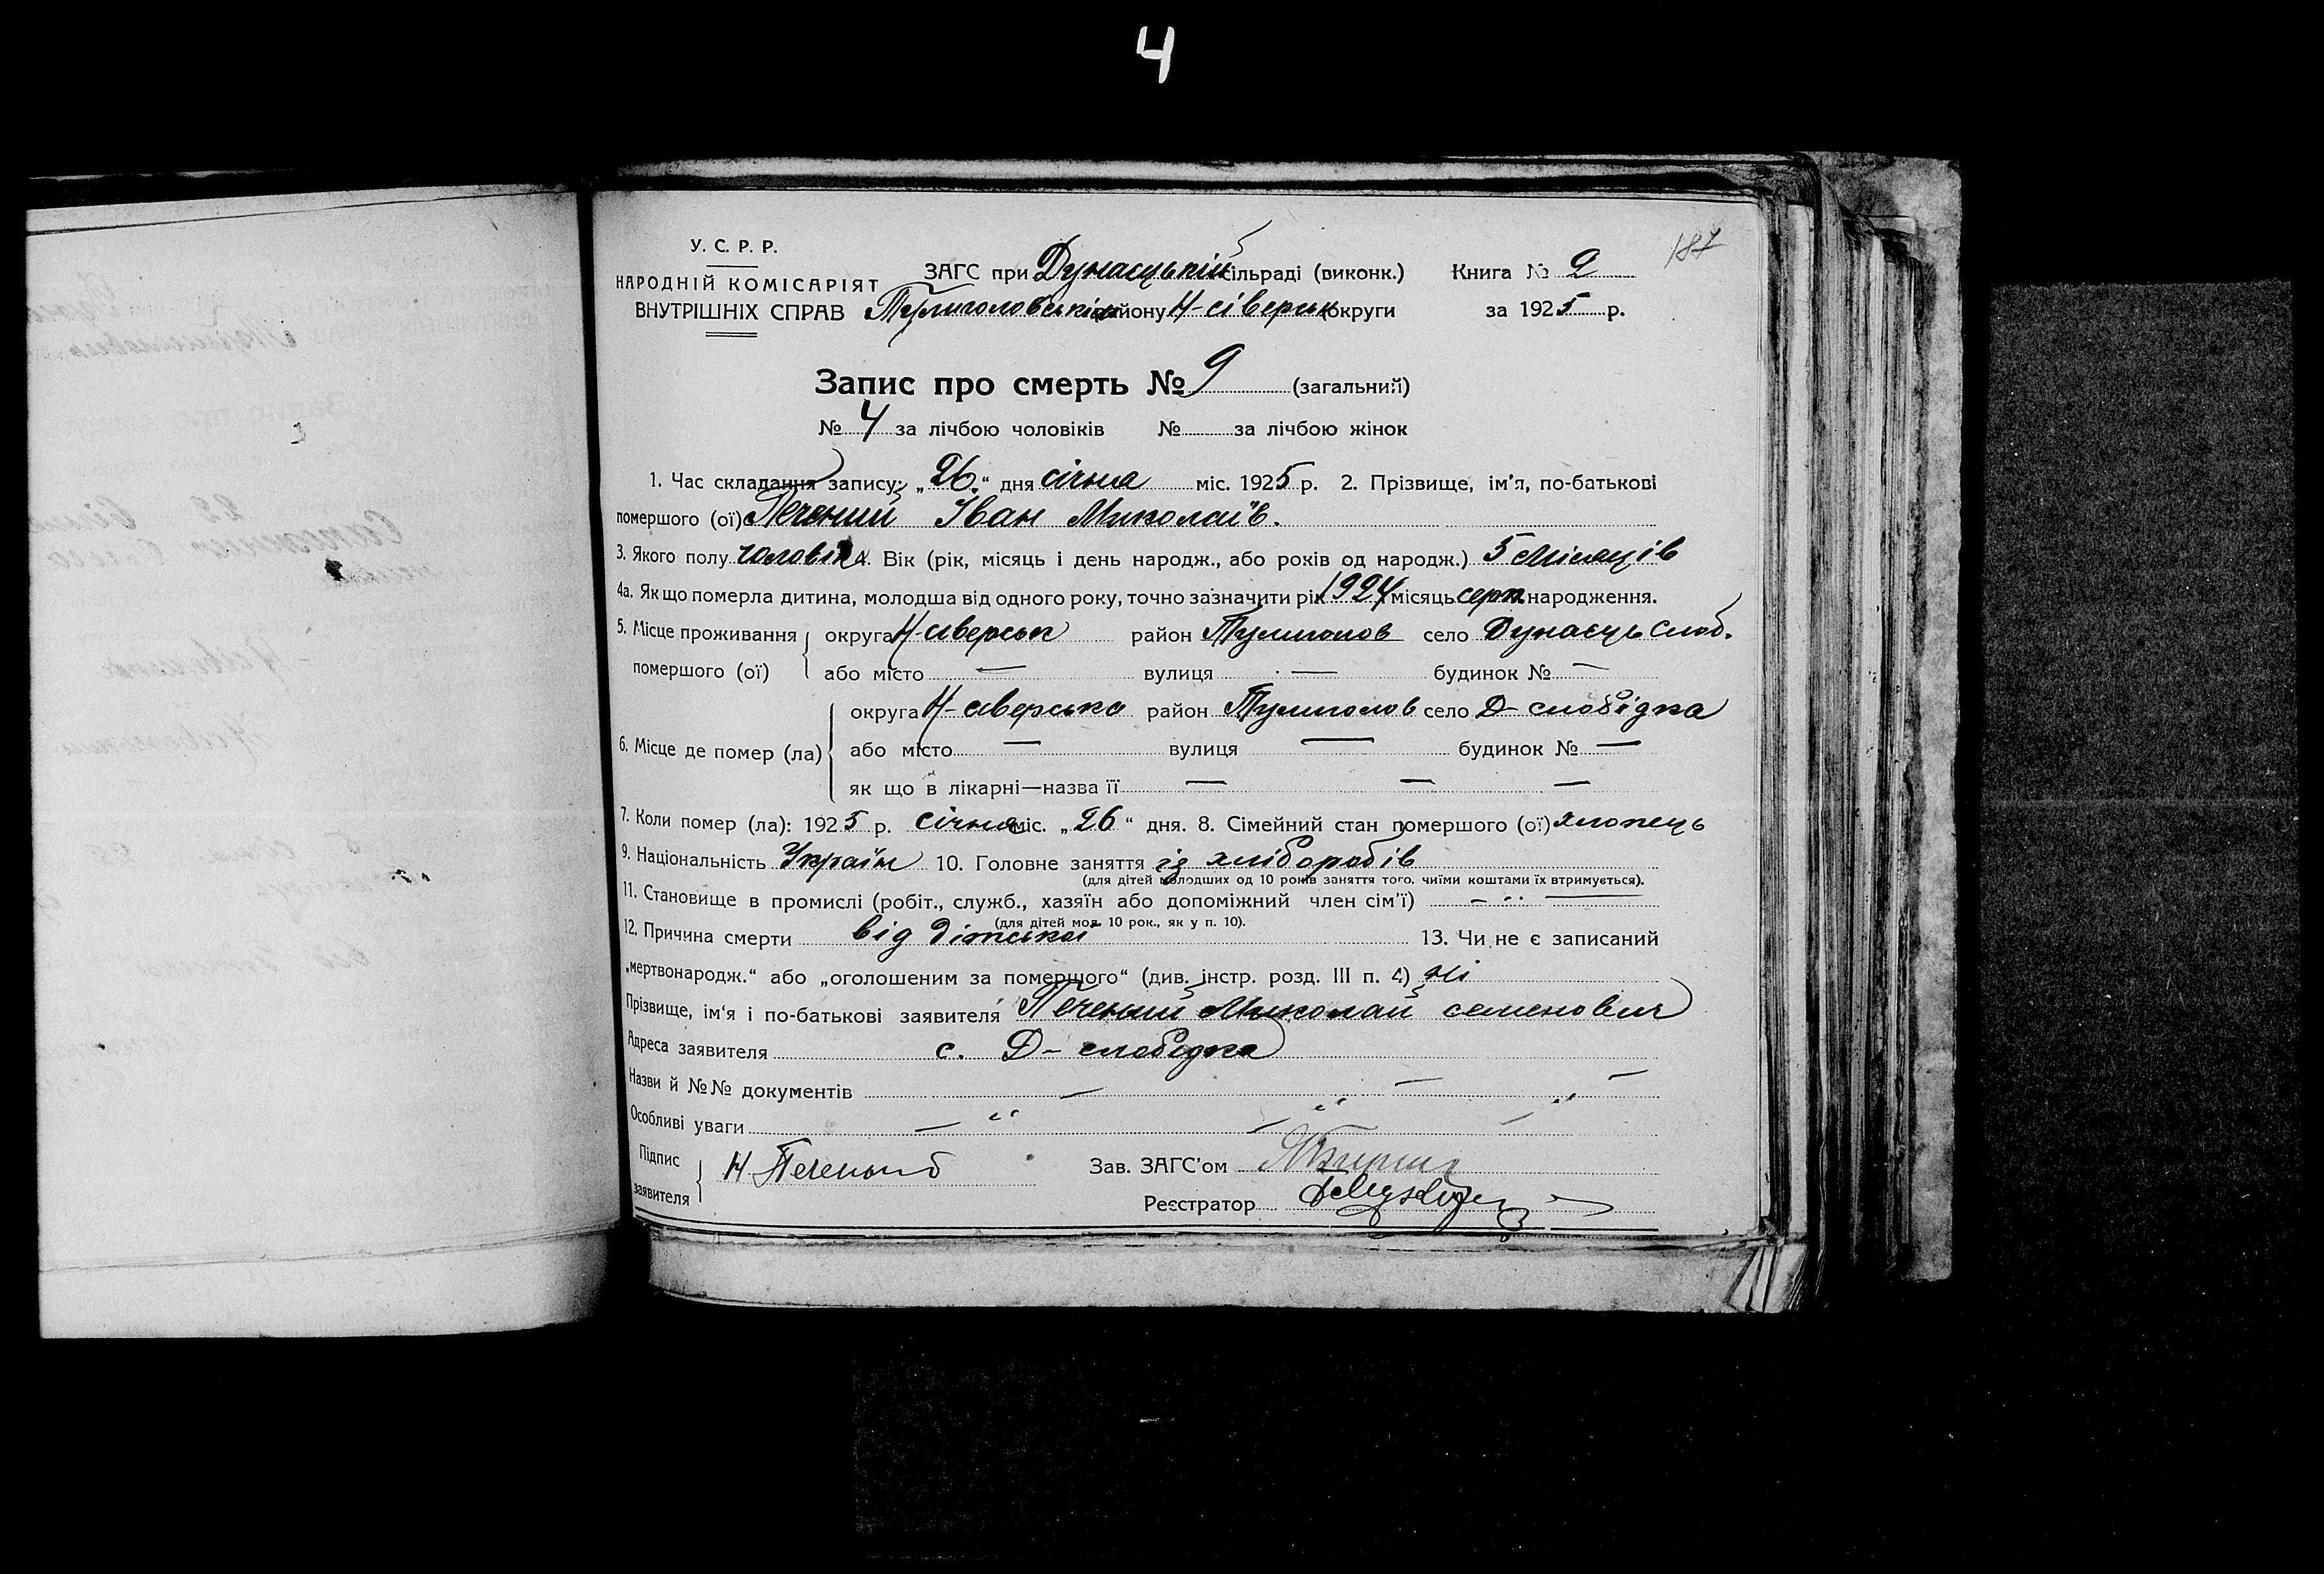 4
187
У. С. Р. Р.
НАРОДНІЙ КОМІСАРІЯТ
ВНУТРІШНІХ СПРАВ
ЗАГС при Дунаєцькій сільраді (виконк.) Книга № 2
Тулиголовськ району Н-сіверськ округи за 1925 р.
Запис про смерть № 9 (загальний)
№ 4 за лічбою чоловіків № за лічбою жінок
1. Час складання запису: „26“ дня січня міс. 1925 р. 2. Прізвище, ім'я, по-батькові
помершого (ої) Печений Іван Миколаїв.
3. Якого полу чоловік 4. Вік (рік, місяць і день народж., або років од народж.) 5 місяців
4а. Як що померла дитина, молодша від одного року, точно зазначити рік 1924 місяць серп. народження.
5. Місце проживання округа Н-сіверськ район Тулиголов село Дунаєць слоб.
помершого (ої) або місто — вулиця — будинок № —
округа Н-сіверська район Тулиголов село Д-слобідка
6. Місце де помер (ла) або місто — вулиця — будинок № —
як що в лікарні—назва її — — —
7. Коли помер (ла): 1925 р. січня міс. „26“ дня. 8. Сімейний стан помершого (ої) хлопець
9. Національність Україн 10. Головне заняття із хліборобів
(для дітей молодших од 10 років заняття того, чиїми коштами їх втримується).
11. Становище в промислі (робіт., служб., хазяїн або допоміжний член сім'ї) — „ —
(для дітей мол. 10 рок., як у п. 10).
12. Причина смерти від дітської 13. Чи не є записаний
„мертвонародж.“ або „оголошеним за померщого“ (див. інстр. розд. III п. 4) ні
Прізвище, ім'я і по-батькові заявителя Печений Миколай семенович
Адреса заявителя с. Д-слобідка
Назви й №№ документів — — —
Особливі уваги — „ — „ — „
Підпис
заявителя Н Печеный
Зав. ЗАГС'ом
Реєстратор